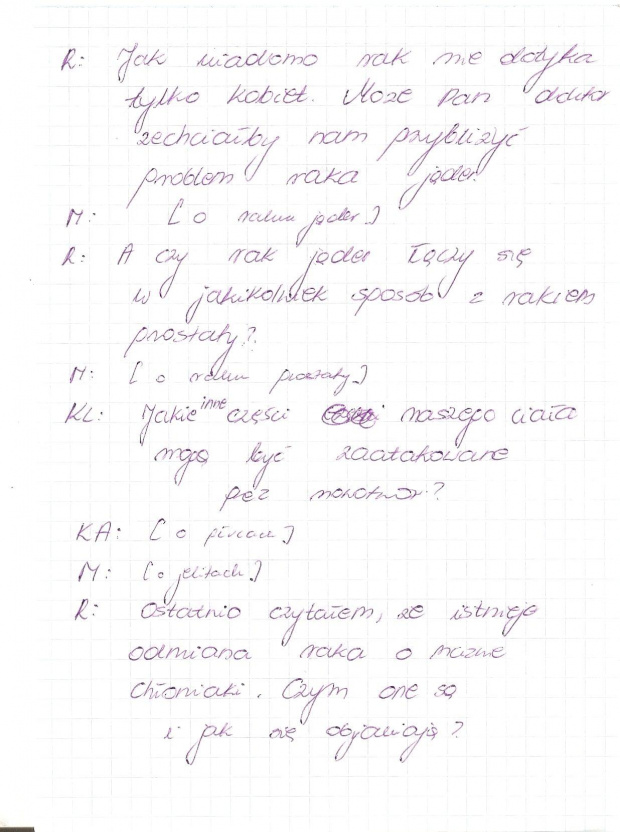 R: Jak wiadomo rak nie dotyka
tylko kobiet. Może Pan doktor
zechciałby nam przybliżyć
problem raka jąder.
M: [o raku jąder.]
R: A czy rak jąder łączy się
w jakikolwiek sposób z rakiem
prostaty?
M: [o raku prostaty.]
KL: Jakie inne części naszego ciała
mogą być zaatakowane
pez nowotwór?
KA: [o płucach]
M: [o jelitach.]
R: Ostatnio czytałem, że istnieje
odmiana raka o nazwie
chłoniaki. Czym one są
i jak się objawiają?